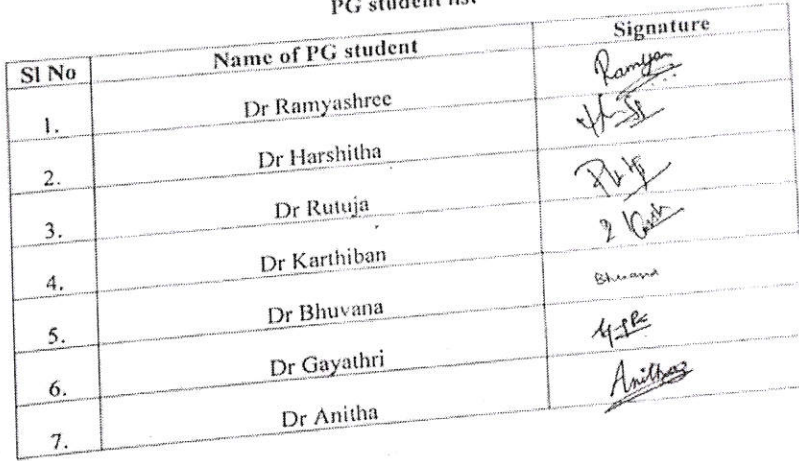 PG student list
Sl No Name of PG student Signature
1. Dr Ramyashree
2. Dr Harshitha
3. Dr Rutuja
4. Dr Karthiban
5. Dr Bhuvana Bhuvana
6. Dr Gayathri
7. Dr Anitha Anitha